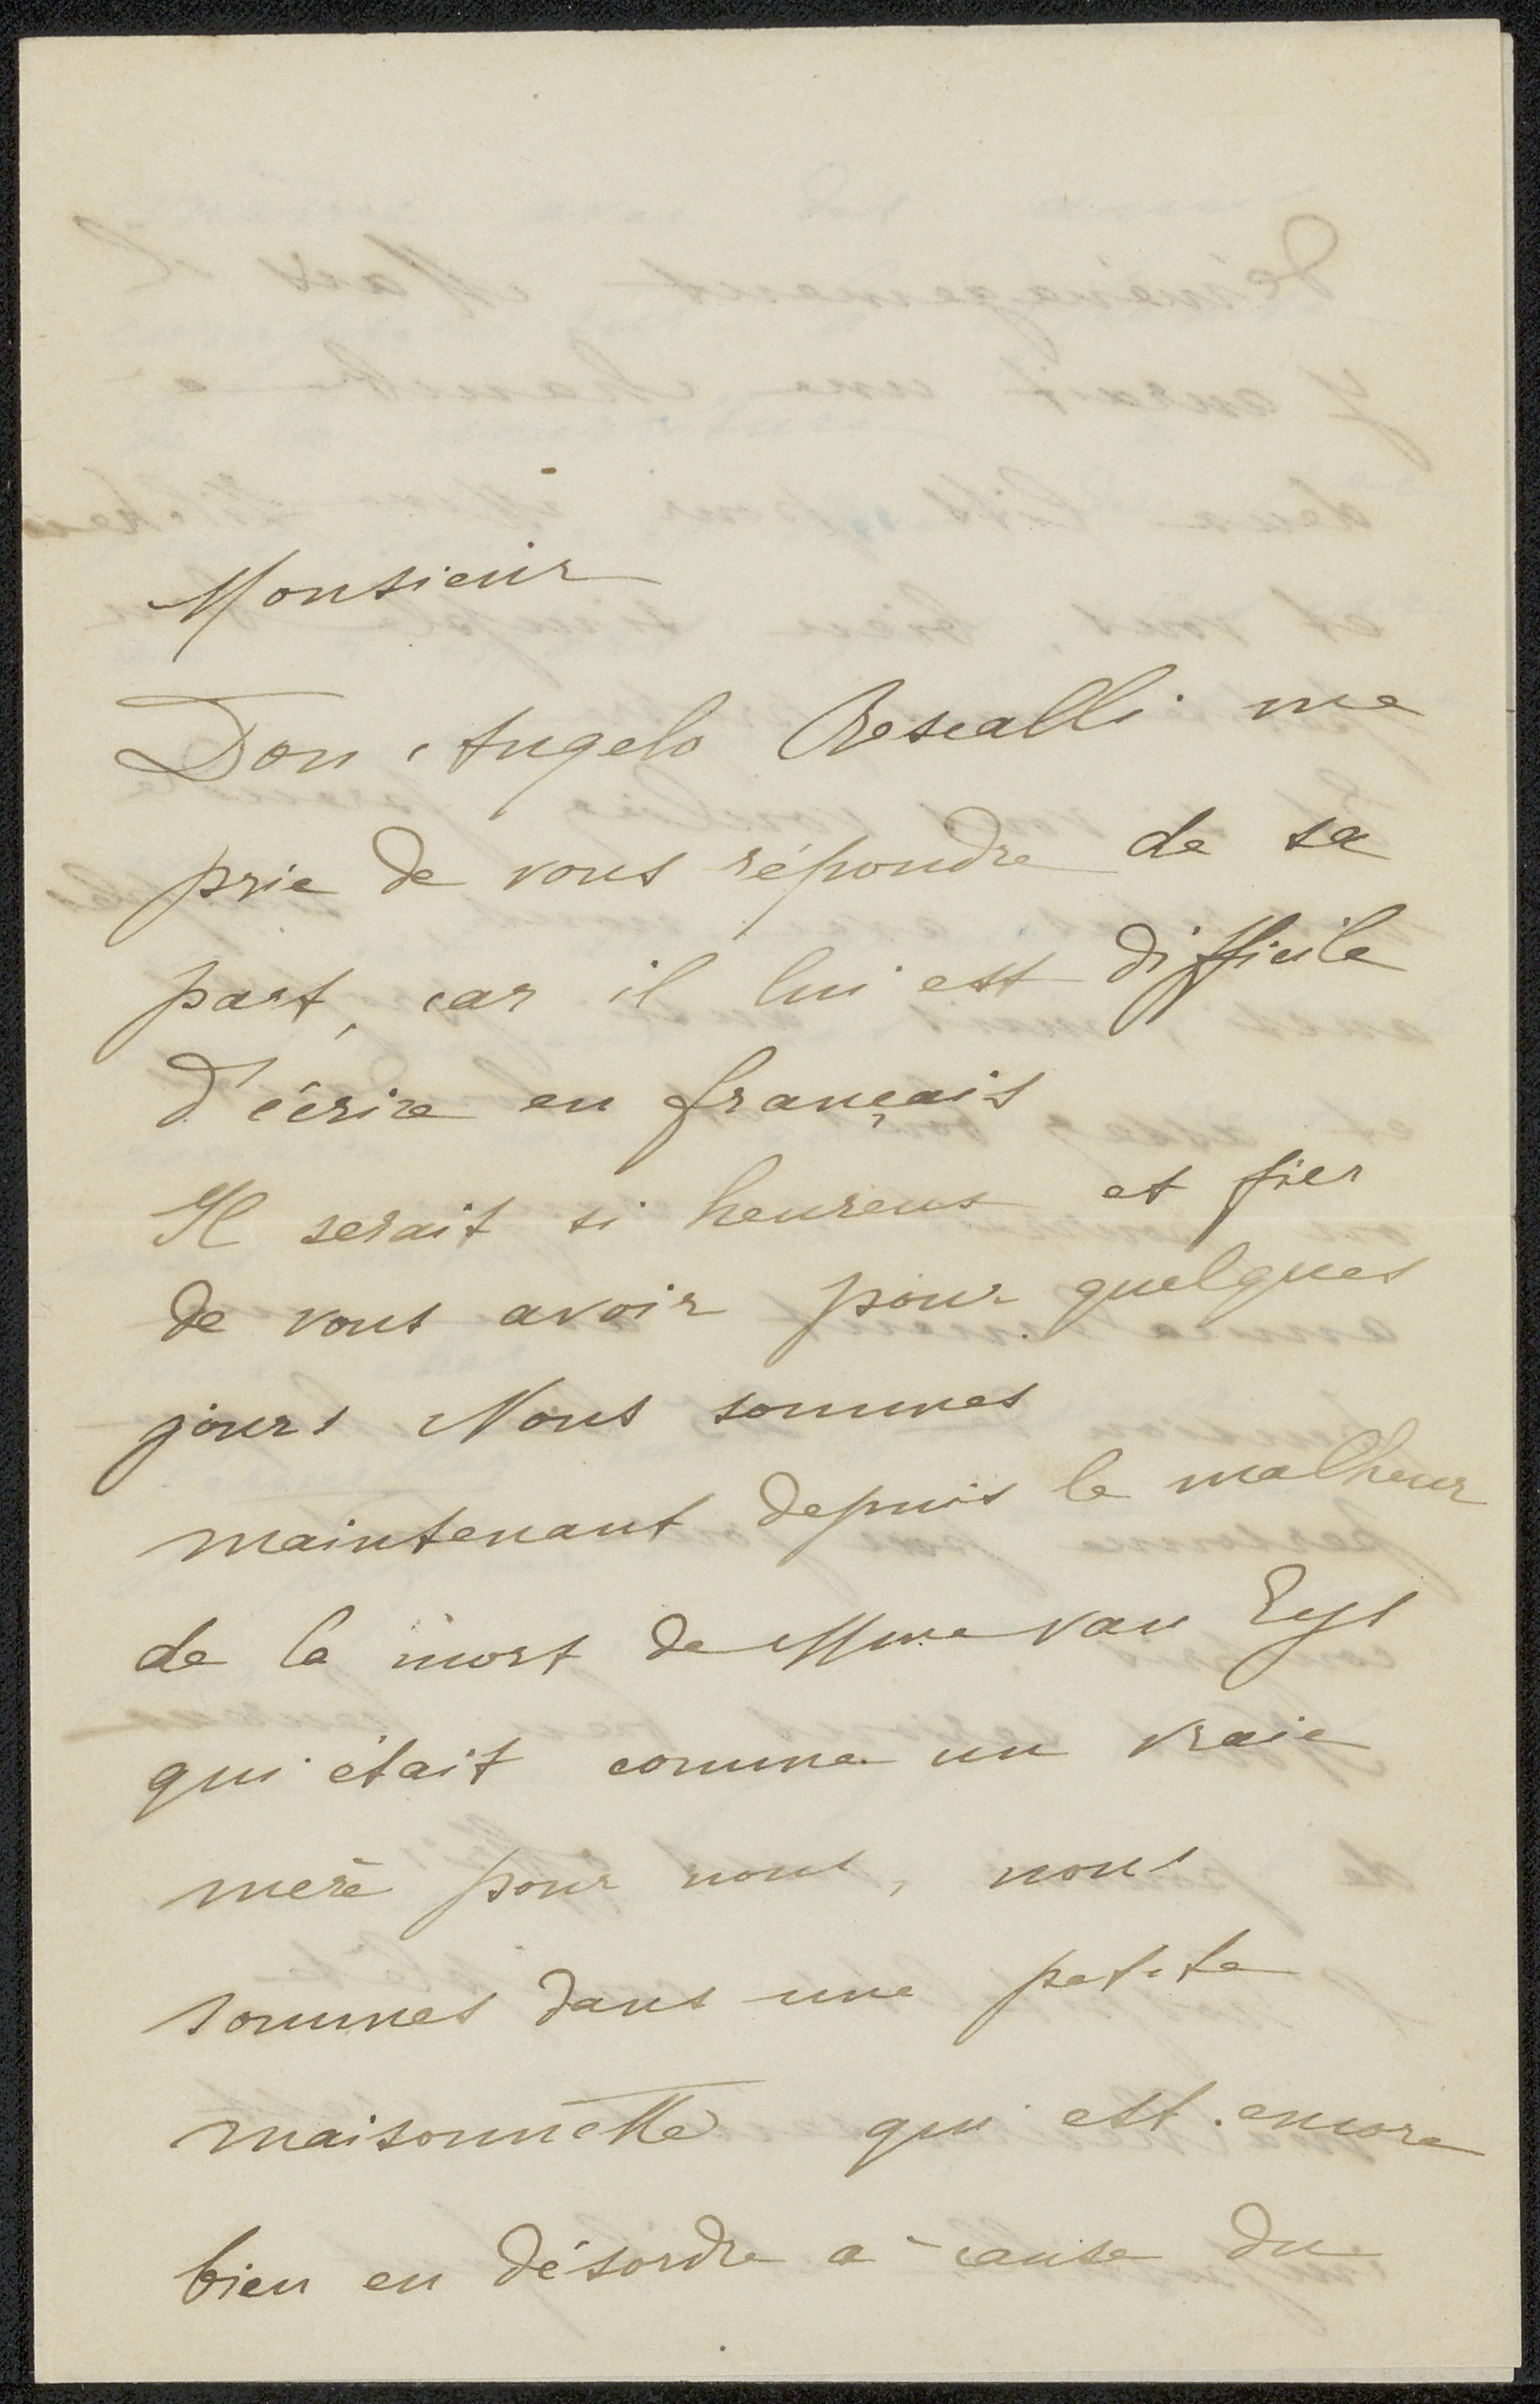 Monsieur
Don Angelo Rescalli me
prie de vous répondre de sa
part, car il lui est difficile
d'écrire en français
Il serait si heureux et fier
de vous avoir pour quelques
jours Nous sommes
maintenant depuis le malheur
de la mort de Mme van Eys
qui était comme un vraie
mère pour nous, nous
sommes dans une petite
maisonnette qui est encore
bien en désordre a cause du